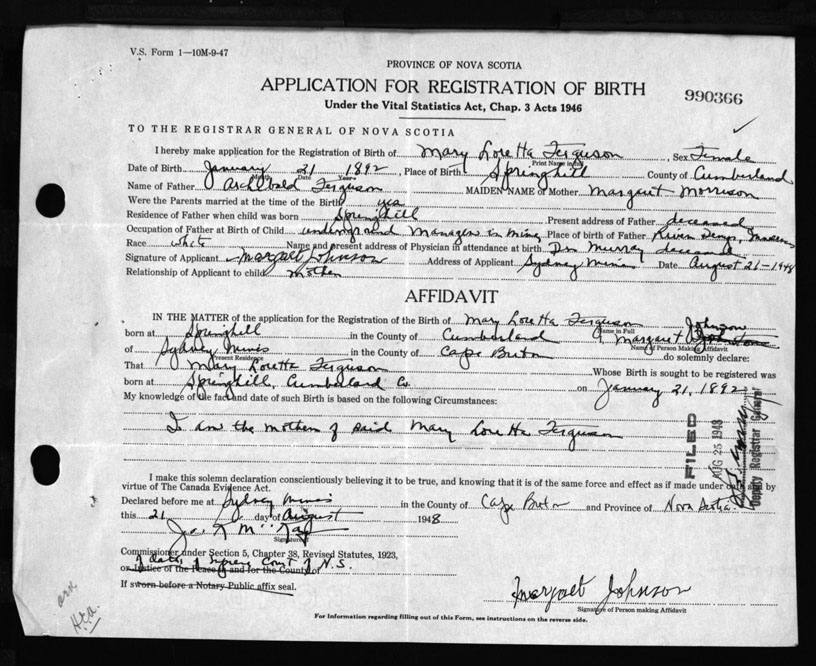 V.S. Form 1—10M-9-47
PROVINCE OF NOVA SCOTIA
APPLICATION FOR REGISTRATION OF BIRTH
990366
Under the Vital Statistics Act, Chap. 3 Acts 1946
TO THE REGISTRAR GENERAL OF NOVA SCOTIA
I hereby make application for the Registration of Birth of Mary Loretta Ferguson, Sex Female
Print Name in Full
Date of Birth January 21 1892, Place of Birth Springhill County of Cumberland
Month Date Year
Name of Father Archibald Ferguson MAIDEN NAME of Mother Margaret Morrison
Were the Parents married at the time of the Birth yes
Residence of Father when child was born Springhill Present address of Father deceased
Occupation of Father at Birth of Child underground Manager in Mine Place of birth of Father River Denys,
Race white Name and present address of Physician in attendance at birth Dr. Murray deceased
Signature of Applicant Margaret Johnson Address of Applicant Sydney Mines Date August 21-1948
Relationship of Applicant to child Mother
AFFIDAVIT
IN THE MATTER of the application for the Registration of Birth of Mary Loretta Ferguson Johnson
Name in Full
born at Springhill in the County of Cumberland I, Margaret
Name of Person Making Affidavit
of Sydney Mines in the County of Cape Breton do solemnly declare:
Present Residence
That Mary Loretta Ferguson Whose Birth is sought to be registered was
born at Springhill, Cumberland Co. on January 21, 1892
My knowledge of the fact and date of such Birth is based on the following Circumstances:
I am the mother of said Mary Loretta Ferguson
FILED
AUG 25 1948
Deputy Registrar General
I make this solemn declaration conscientiously believing it to be true, and knowing that it is of the same force and effect as if made under oath and by
virtue of The Canada Evidence Act.
Declared before me at Sydney Mines in the County of Cape Breton and Province of Nova Scotia.
this 21 day of August 1948
Signature of
Commissioner under Section 5, Chapter 38, Revised Statutes, 1923,
of Supreme Court of N.S.
or Justice of the Peace in and for the County of
If sworn before a Notary Public affix seal.
Margaret Johnson
Signature of Person making Affidavit
For Information regarding filling out of this Form, see instructions on the reverse side.